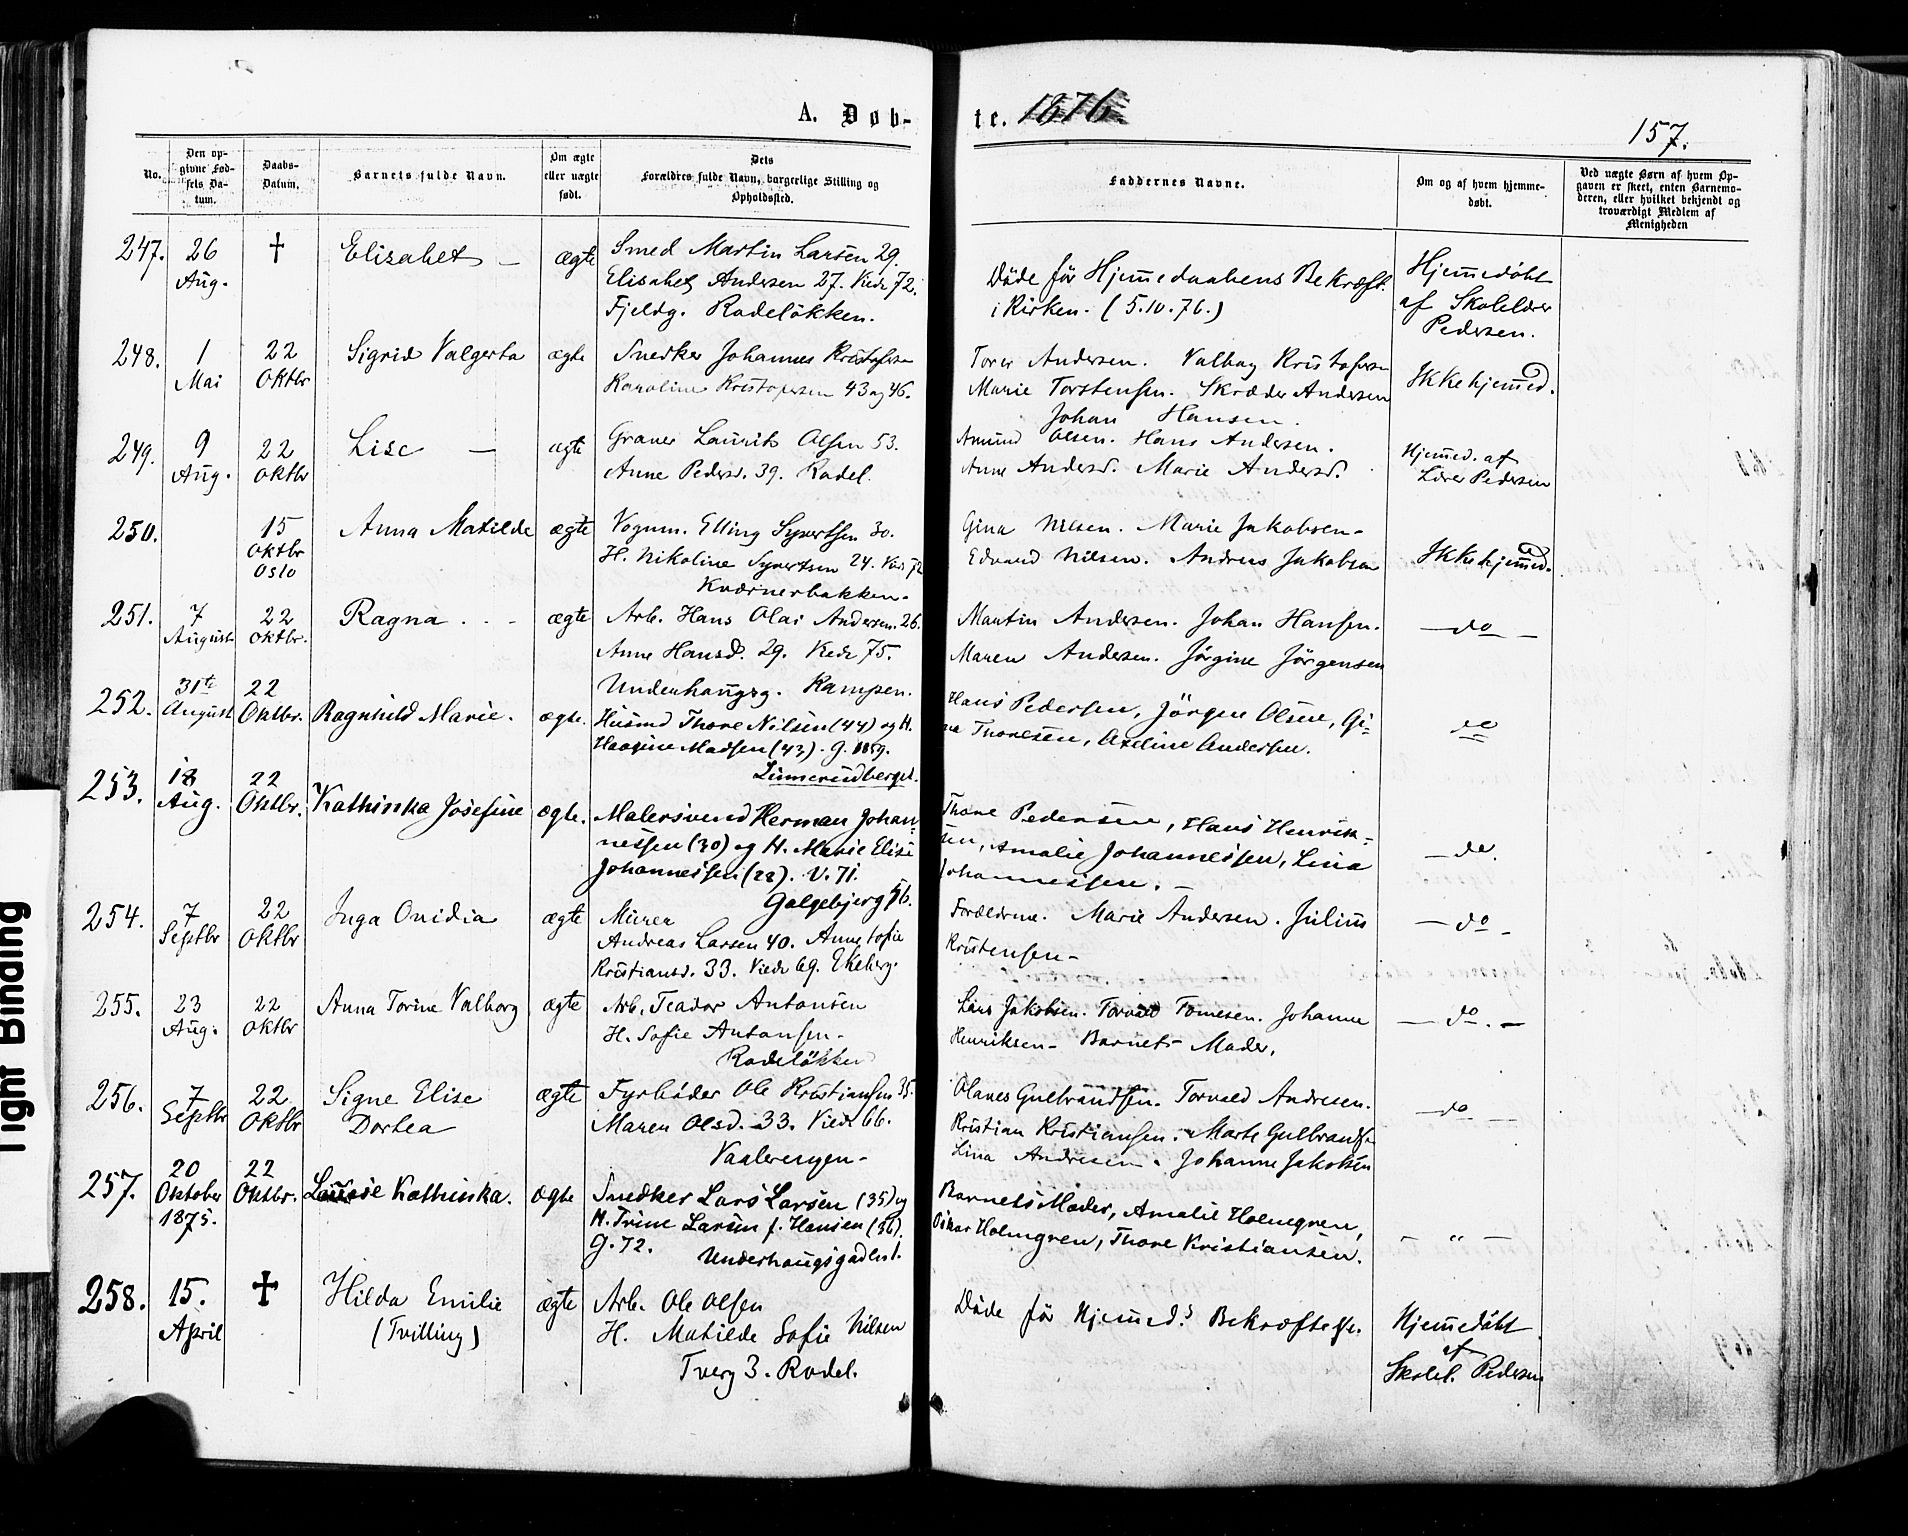 A. Døb-
te. 1876.
157.
No.
Den op-
givne Fød-
sels Da-
tum.
Daabs-
Datum.
Barnets fulde Navn.
Om ægte
eller uægte
født.
Dets
Forældres fulde Navn, borgerlige Stilling og
Opholdssted.
Faddernes Navne.
Om og af hvem hjemme-
døbt.
Ved uægte Børn af hvem Op-
gaven er skeet, enten Barnemo-
deren, eller hvilket bekjendt og
troværdigt Medlem af
Menigheden
247.
26
Aug.
†
Elisabet –
ægte
Smed Martin Larsen 29.
Elisabet Andersen 27. Viede 72.
Fjeldg. Rodeløkken.
Døde før Hjemmedaabens Bekræft.
i Kirken. (5.10.76.)
Hjemmedøbt
af Skolelærer
Pedersen.
248.
1
Mai
22
Oktbr
Sigrid Valgerta
ægte
Snedker Johannes Kristofersen
Karoline Kristofersen 43 og 46.
Andersen. Valborg Kristofersen
Marie Torstensen. Skræder Andersen
Johan Hansen.
Ikke hjemmed.
249.
9
Aug.
22
Oktbr
Lise –
ægte
Graver Laurits Olsen 53.
Anne Pedersd. 39. Rodel.
Amund Olsen. Hans Andersen.
Anne Andersd. Marie Andersd.
Hjemmed. af
Lærer Pedersen
250.
15
Oktbr
Oslo
Anna Matilde
ægte
Vognm. Elling Syvertsen 30.
H. Nikoline Syvertsen 24. Viede 72
Kværnerbakken.
Gina Nilsen. Marie Jakobsen-
Edvard Nilsen. Andreas Jakobsen
Ikke hjemmed.
251.
7
August
22
Oktbr.
Ragna . . -
ægte
Arb. Hans Olai Andersen. 26.
Anne Hansd. 29. Viede 75.
Underhaugsg. Kampen.
Martin Andersen. Johan Hansen.
Maren Andersen. Jørgine Jørgensen
– do –
252.
31te
August
22
Oktbr.
Ragnhild Marie.
ægte.
Husmd Thore Nilsen (44) og H.
Madsen (43). G. 1859.
Linnerudberget.
Hans Pedersen, Jörgen Olsen, Gi=
na Thoresen, Axeline Andersen.
do
253.
18
Aug.
22
Oktbr.
Kathinka Josefine
ægte.
Malersvend Herman Johan-
nessen (30) og H. Marie Elise
Johannessen (28). V. 71.
Galgebjerg 56.
Thore Pedersen, Hans Henrik-
sen, Amalie Johannessen, Lina
Johannessen. –
– do.
254.
7
Septbr
22
Oktbr
Inga Ovidia
ægte
Murer
Andreas Larsen 40. Anne Sofie
Kristiansd. 33. Viede 69. Ekeberg.
Forældrene. Marie Andersen. Julius
Kristensen-
– do -
255.
23
Aug.
22
Oktbr
Anna Torine Valborg
ægte
Arb. Teador Antonsen
H. Sofie Antonsen-
Rodeløkken
Lars Jakobsen. Torvald Tomesen. Johanne
Henriksen- Barnets Moder.
– do. –
256.
7
Septbr
22
Oktbr
Signe Elise
Dortea
ægte
Fyrbøder Ole Kristiansen 35.
Maren Olsd. 33. Viede 66.
Vaalerengen-
Olaves Gulbrandsen. Torvald Andresen.
Kristian Kristiansen. Marte Gulbrandsen
Lina Andresen. Johanne Jakobsen
– do –
257.
20
Oktober
1875.
22
Oktbr.
Louise Kathinka.
ægte
Snedker Lars Larsen (35) og
H. Trine Larsen f. Hansen (36).
G. 72.
Underhaugsgaden 1.
Barnets Moder, Amalie Holmgren,
Oskar Holmgren, Thore Kristiansen.
– " –
258.
15.
April
†
Hilda Emilie
(Tvilling)
ægte
Arb. Ole Olsen
H. Matilde Sofie Nilsen
Tverg 3. Rodel.
Døde før Hjemmeds Bekræftelse.
Hjemmedøbt
af
Skolel. Pedersen
Tight Binding